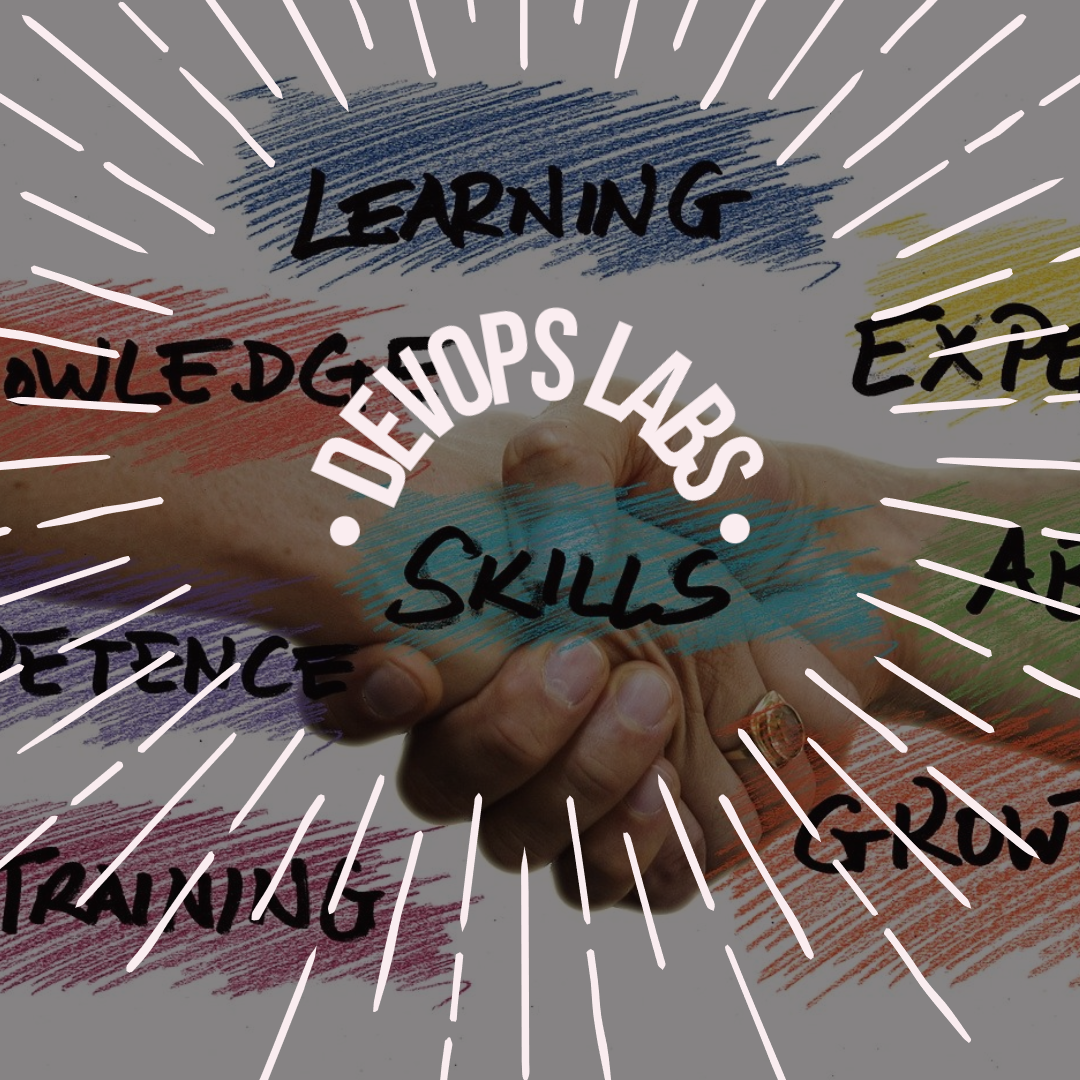 LEARNING
OWLEDGE
EXPE
DEVOPS LABS
SKILLS
AB
PETENCE
GROWT
TRAINING